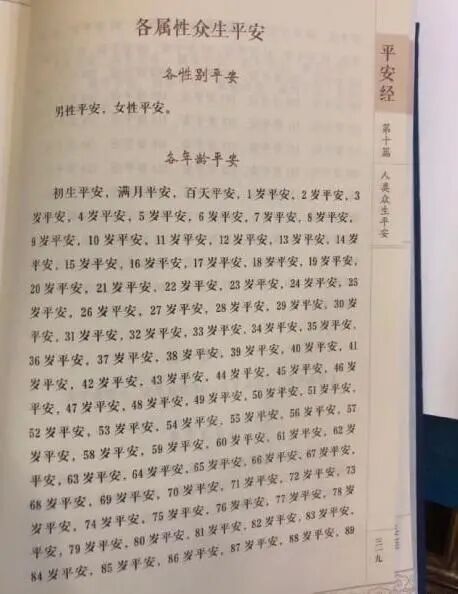 各属性众生平安
各性别平安
男性平安，女性平安。
各年龄平安
初生平安，满月平安，百天平安，1岁平安，2岁平安，3
岁平安，4岁平安，5岁平安，6岁平安，7岁平安，8岁平安，
9岁平安，10岁平安，11岁平安，12岁平安，13岁平安，14岁
平安，15岁平安，16岁平安，17岁平安，18岁平安，19岁平安，
20岁平安，21岁平安，22岁平安，23岁平安，24岁平安，25岁
平安，26岁平安，27岁平安，28岁平安，29岁平安，30岁平
安，31岁平安，32岁平安，33岁平安，34岁平安，35岁平安，
36岁平安，37岁平安，38岁平安，39岁平安，40岁平安，41
岁平安，42岁平安，43岁平安，44岁平安，45岁平安，46岁
平安，47岁平安，48岁平安，49岁平安，50岁平安，51岁平安，
52岁平安，53岁平安，54岁平安，55岁平安，56岁平安，57
岁平安，58岁平安，59岁平安，60岁平安，61岁平安，62岁
平安，63岁平安，64岁平安，65岁平安，66岁平安，67岁平安，
68岁平安，69岁平安，70岁平安，71岁平安，72岁平安，73
岁平安，74岁平安，75岁平安，76岁平安，77岁平安，78岁
平安，79岁平安，80岁平安，81岁平安，82岁平安，83岁平安，
84岁平安，85岁平安，86岁平安，87岁平安，88岁平安，89
平安经
第十篇 人类众生平安
三一九